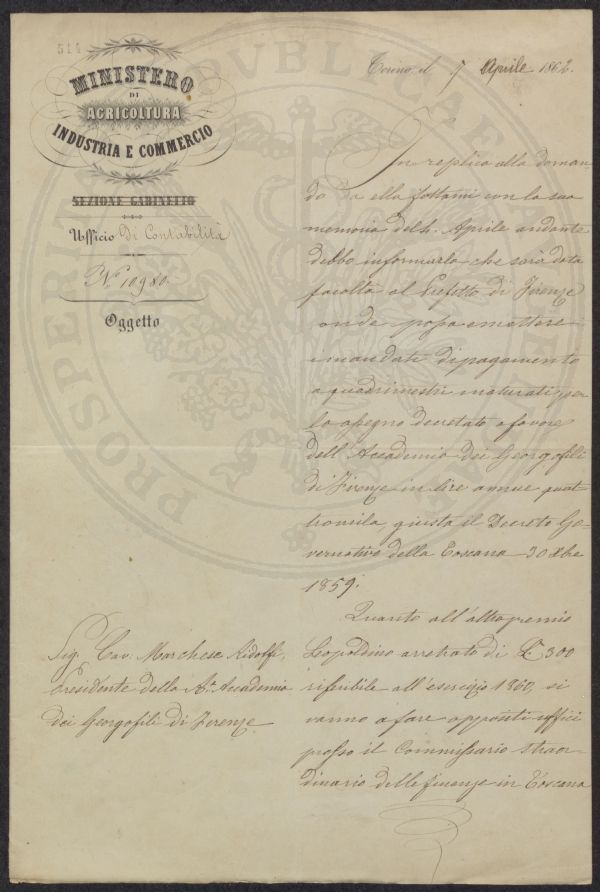 514
MINISTERO
DI
AGRICOLTURA
INDUSTRIA E COMMERCIO
SEZIONE GABINETTO
Ufficio Di Contabilità
N.° 10980.
Oggetto
Torino, il 7 Aprile 1862.
In replica alla doman-
da da ella fattami con la sua
memoria del 4. Aprile andante
debbo informarla che sarà data
facoltà al Prefetto di Firenze
onde possa emettere
i mandati di pagamento
a quadrimestri maturati per
lo assegno decretato a favore
dell'Accademia dei Georgofili
di Firenze in lire annue quat-
tromila, giusta il Decreto Go-
vernativo della Toscana 30 Xbre
1859.
Quanto all'altro premio
Leopoldino arretrato di £ 300
riferibile all'esercizio 1860, si
vanno a fare appositi uffici
presso il Commissario straor-
dinario delle finanze in Toscana
Sig. Cav. Marchese Ridolfi,
Presidente della R.a Accademia
dei Georgofili di Firenze
PROSPERITATI PUBLICAE AUGENDAE